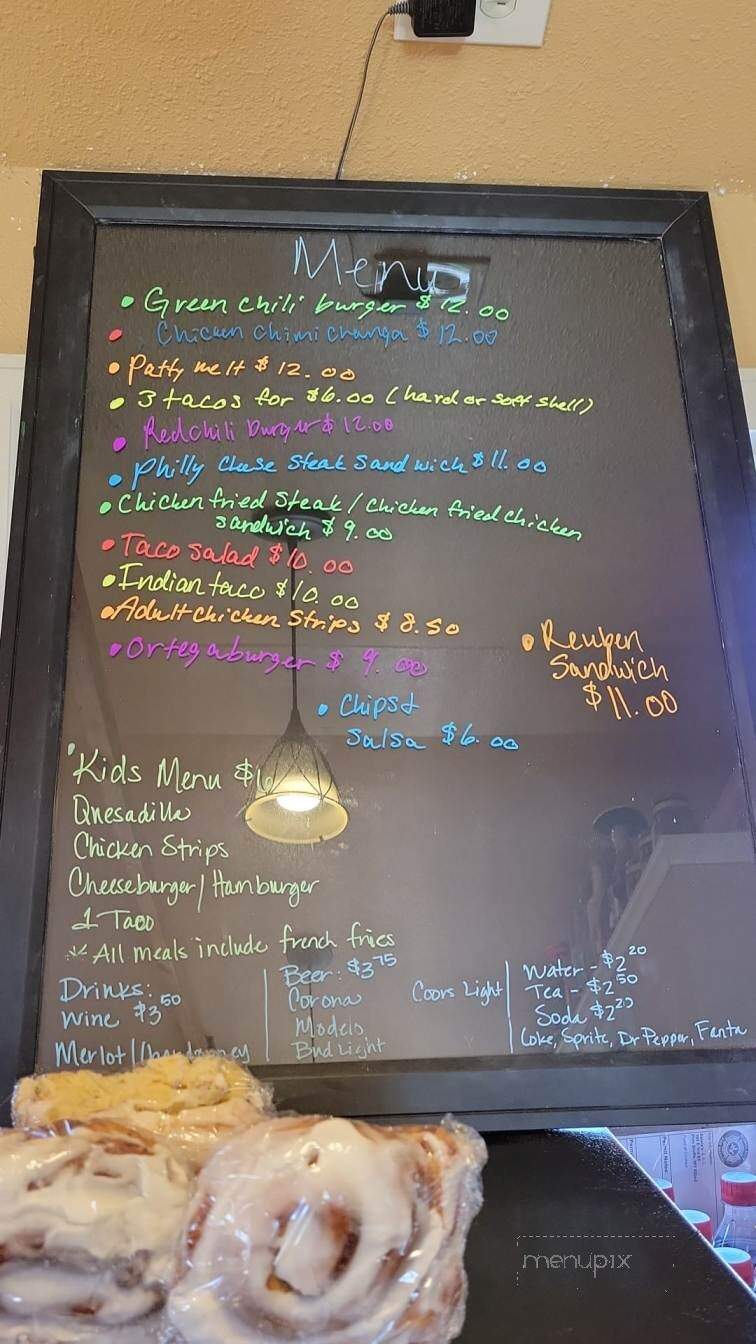 Menu
• Green chili burger $12.00
• Chicken chimi changa $12.00
• Patty melt $12.00
• 3 tacos for $6.00 (hard or soft shell)
• Red chili burger $12.00
• Philly cheese steak sandwich $11.00
• Chicken fried steak / chicken fried chicken
sandwich $9.00
• Taco salad $10.00
• Indian taco $10.00
• Adult chicken strips $8.50
• Ortega burger $9.00
• Reuben
Sandwich
$11.00
• Chips &
Salsa $6.00
• Kids Menu $6
Quesadilla
Chicken Strips
Cheeseburger/Hamburger
1 Taco
* All meals include french fries
Drinks:
Wine $3.50
Merlot/Chardonney
Beer: $3.75
Corona
Modelo
Bud Light
Coors Light
Water - $2.20
Tea - $2.50
Soda $2.20
Coke, Sprite, Dr Pepper, Fanta
menupix